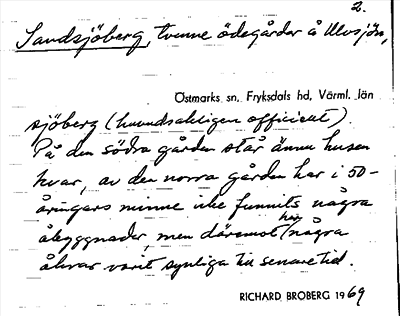 2.
Sandsjöberg, tvenne ödegårdar å Ulvsjön,
Östmarks sn, Fryksdals hd, Värml. län
sjöberg (huvudsakligen officiellt).
På den södra gården står ännu husen
kvar, av den norra gården har i 50-
åringars minne icke funnits några
åbyggnader, men däremot ha några
åkrar varit synliga till senare tid.
RICHARD BROBERG 1969